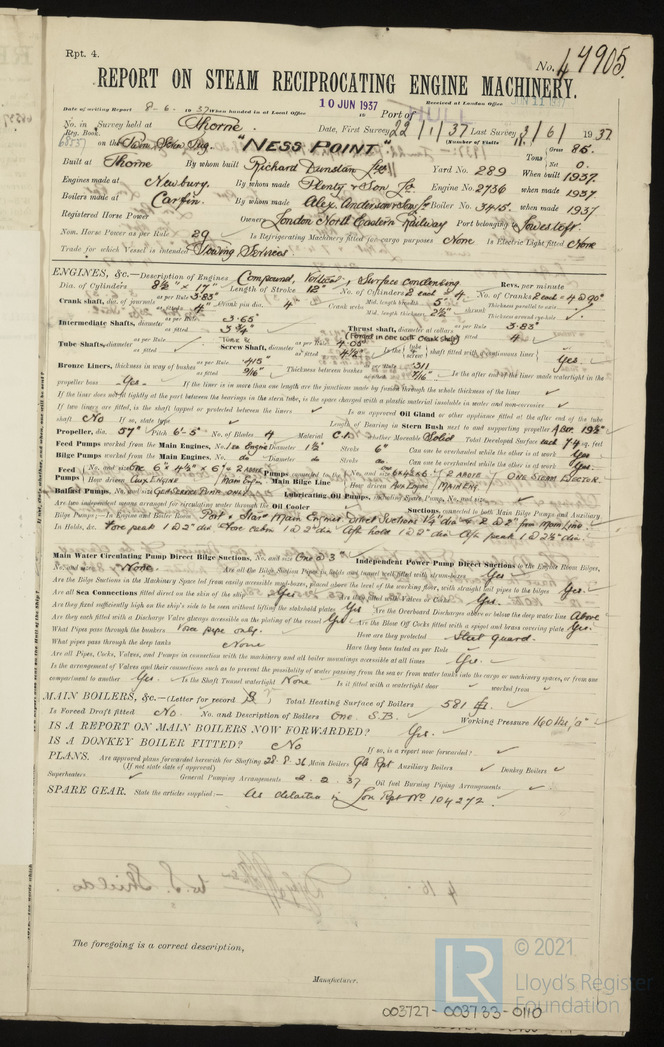 Rpt. 4.
No. 4905.
REPORT ON STEAM RECIPROCATING ENGINE MACHINERY.
Date of writing Report 8-6-1937 When handed in at Local Office 10 JUN 1937 Port of HULL
Received at London Office
No. in Survey held at Thorne. Date, First Survey 22/1/37 Last Survey 3/6/1937
Reg. Book. (Number of Visits
on the Twin Screw Tug "NESS POINT" Tons Gross 85. Net 0.
Built at Thorne By whom built Richard Dunston Ltd Yard No. 289 When built 1937.
Engines made at Newbury. By whom made Plenty & Son Ld. Engine No. 2736 when made 1937
Boilers made at Carfin. By whom made Alex. Anderson & Sons Ld Boiler No. 3415. when made 1937
Registered Horse Power Owners London North Eastern Railway Port belonging to Lowestoft
Nom. Horse Power as per Rule 29 Is Refrigerating Machinery fitted for cargo purposes None Is Electric Light fitted None
Trade for which Vessel is intended Towing Services
ENGINES, &c.—Description of Engines Compound, Vertical, Surface condensing Revs. per minute
Dia. of Cylinders 8½" x 17" Length of Stroke 12" No. of Cylinders 2 each = 4 No. of Cranks 2 each = 4 @ 90°
Crank shaft, dia. of journals as per Rule 3.83" as fitted 4" Crank pin dia. 4" Crank webs Mid. length breadth 5" Mid. length thickness 2½"
Intermediate Shafts, diameter as per Rule 3.65 as fitted 3¾" Thrust shaft, diameter at collars as per Rule 3.83 as fitted 4"
(Forged in one with Crank shaft)
Tube Shafts, diameter as per Rule as fitted Screw Shaft, diameter as per Rule 4.05 as fitted 4½" Is the shaft fitted with continuous liner Yes.
Bronze Liners, thickness in way of bushes as per Rule .415 as fitted 9/16" Thickness between bushes as per Rule .311 as fitted 7/16" Is the after end of the liner made watertight in the
propeller boss Yes. If the liner is in more than one length are the junctions made by fusion through the whole thickness of the liner
If the liner does not fit tightly at the part between the bearings in the stern tube, is the space charged with a plastic material insoluble in water and non-corrosive
If two liners are fitted, is the shaft lapped or protected between the liners Is an approved Oil Gland or other appliance fitted at the after end of the tube
shaft No If so, state type Length of Bearing in Stern Bush next to and supporting propeller
Propeller, dia. 57" Pitch 6'-5" No. of Blades 4 Material C.I. whether Moveable Solid Total Developed Surface each 7¾ sq. feet
Feed Pumps worked from the Main Engines, No. 1 ea Engine Diameter 1½" Stroke 6" Can one be overhauled while the other is at work Yes
Bilge Pumps worked from the Main Engines, No. do Diameter do Stroke do Can one be overhauled while the other is at work Yes.
Feed Pumps No. and size One 6" x 4½" x 6" & 2 above How driven Aux Engine Main Eng. Pumps connected to the Main Bilge Line No. and size 6 x 4½ x 6 & 2 above & One Steam Ejector How driven Aux Engine Main Eng
Ballast Pumps, No. and size Gen Service Pump only Lubricating Oil Pumps, including Spare Pump, No. and size
Are two independent means arranged for circulating water through the Oil Cooler Suctions, connected to both Main Bilge Pumps and Auxiliary
Bilge Pumps;—In Engine and Boiler Room Port & Star Main Engines Direct Suctions 1¼" dia & 2 @ 2" from Main Line
In Holds, &c. Fore peak 1 @ 2" dia. Fore cabin 1 @ 2" dia. Aft hold 1 @ 2" dia. Aft peak 1 @ 2½ dia.
Main Water Circulating Pump Direct Bilge Suctions, No. and size One @ 3" Independent Power Pump Direct Suctions to the Engine Room Bilges,
No. and size None. Are all the Bilge Suction Pipes in holds and tunnel well fitted with strum-boxes Yes
Are the Bilge Suctions in the Machinery Space led from easily accessible mud-boxes, placed above the level of the working floor, with straight tail pipes to the bilges Yes.
Are all Sea Connections fitted direct on the skin of the ship Yes Are they fitted with Valves or Cocks Yes.
Are they fixed sufficiently high on the ship's side to be seen without lifting the stokehold plates Yes Are the Overboard Discharges above or below the deep water line Above
Are they each fitted with a Discharge Valve always accessible on the plating of the vessel Yes Are the Blow Off Cocks fitted with a spigot and brass covering plate Yes.
What Pipes pass through the bunkers Fore pipe only. How are they protected Steel guard.
What pipes pass through the deep tanks None Have they been tested as per Rule
Are all Pipes, Cocks, Valves, and Pumps in connection with the machinery and all boiler mountings accessible at all times Yes.
Is the arrangement of Valves and their connections such as to prevent the possibility of water passing from the sea or from water tanks into the cargo or machinery spaces, or from one
compartment to another Yes Is the Shaft Tunnel watertight None Is it fitted with a watertight door worked from
MAIN BOILERS, &c.—(Letter for record S) Total Heating Surface of Boilers 581 sq. ft.
Is Forced Draft fitted No. No. and Description of Boilers One. S.B. Working Pressure 160 lbs/□"
IS A REPORT ON MAIN BOILERS NOW FORWARDED? Yes.
IS A DONKEY BOILER FITTED? No If so, is a report now forwarded?
PLANS. Are approved plans forwarded herewith for Shafting 28.8.36 Main Boilers Gls Rpt Auxiliary Boilers Donkey Boilers
(If not state date of approval)
Superheaters General Pumping Arrangements 2.2.37 Oil fuel Burning Piping Arrangements
SPARE GEAR. State the articles supplied:— As detailed in Lon Rpt No 104272.
The foregoing is a correct description,
Manufacturer.
LR
© 2021
Lloyd's Register
Foundation
003727-003733-0110